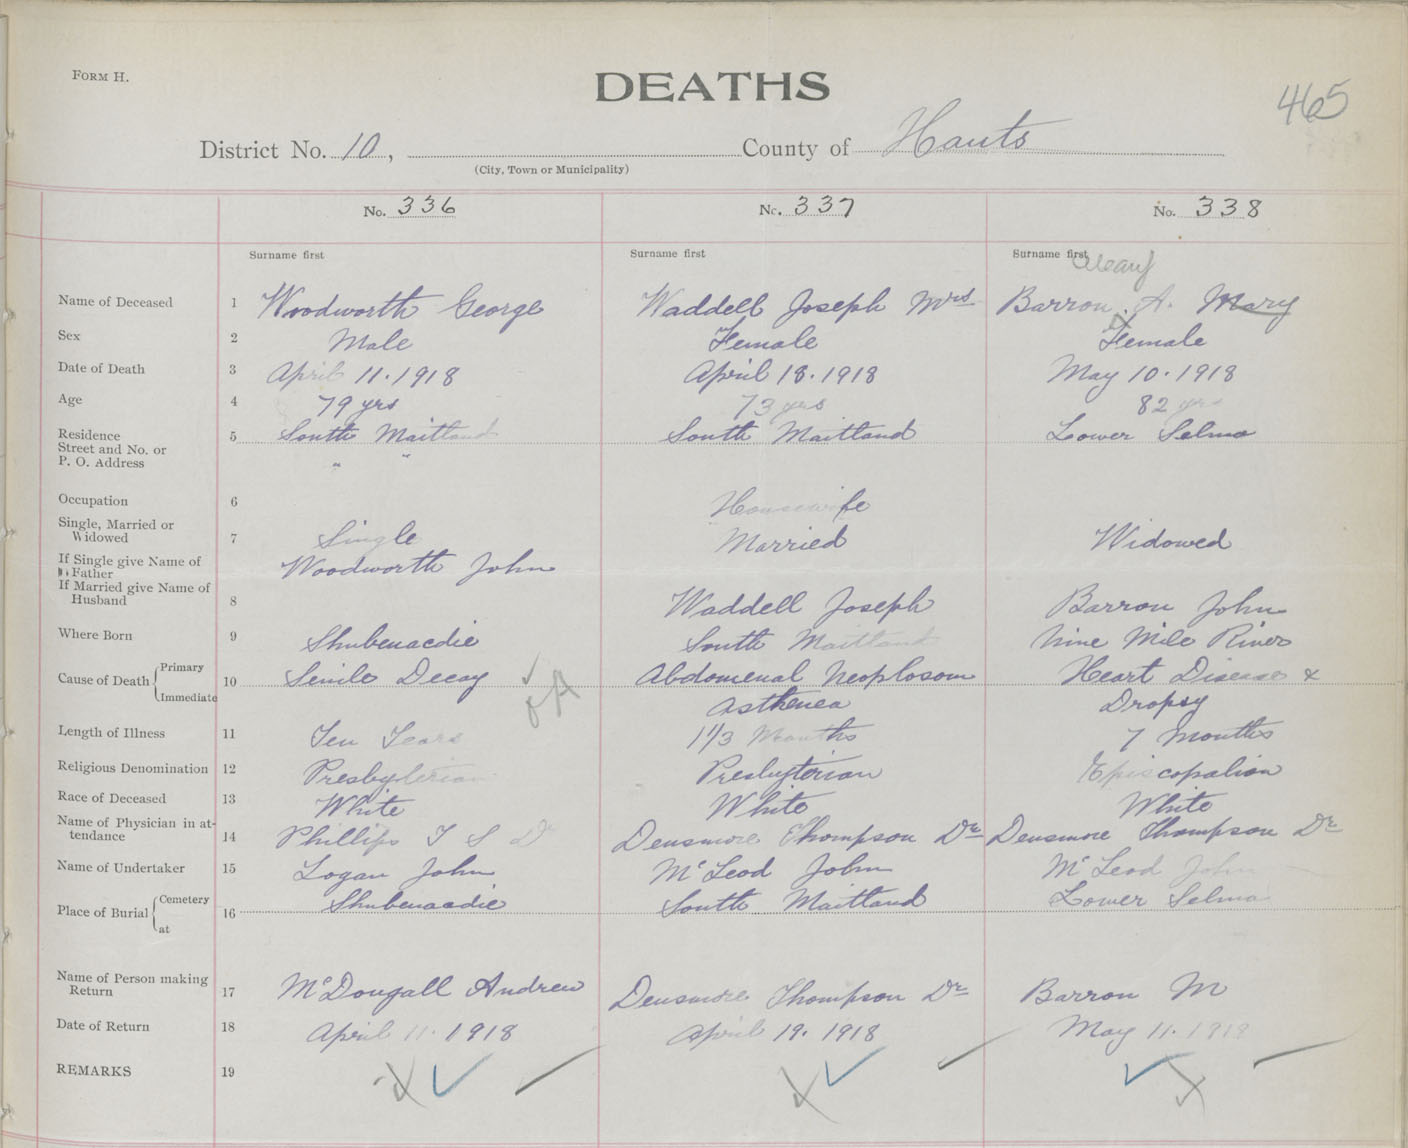 FORM H.
DEATHS
465
District No. 10, County of Hants
(City, Town or Municipality)
No. 336 No. 337 No. 338
Surname first Surname first Surname first
Name of Deceased 1 Woodworth George Waddell Joseph Mrs Barron A. Mary
Sex 2 Male Female Female
Date of Death 3 April 11. 1918 April 18. 1918 May 10. 1918
Age 4 79 yrs 73 yrs 82 yrs
Residence 5 South Maitland South Maitland Lower Selma
Street and No. or
P. O. Address " "
Occupation 6 Housewife
Single, Married or
Widowed 7 Single Married Widowed
If Single give Name of
Father Woodworth John
If Married give Name of
Husband 8 Waddell Joseph Barron John
Where Born 9 Shubenacdie South Maitland Nine Mile River
Cause of Death Primary 10 Senile Decay Abdomenal Neoplosom Heart Disease &
Immediate Asthenea Dropsy
Length of Illness 11 Ten Years 1 1/3 Months 7 Months
Religious Denomination 12 Presbyterian Presbyterian Episcopalian
Race of Deceased 13 White White White
Name of Physician in at-
tendance 14 Phillips T S Dr Densmore Thompson Dr Densmore Thompson Dr
Name of Undertaker 15 Logan John McLeod John McLeod John
Place of Burial Cemetery 16 Shubenacdie South Maitland Lower Selma
at
Name of Person making
Return 17 McDougall Andrew Densmore Thompson Dr Barron M
Date of Return 18 April 11. 1918 April 19. 1918 May 11. 1918
REMARKS 19